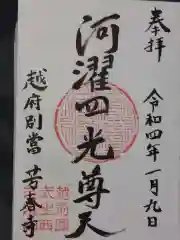 奉拝
令和四年一月九日
河濯四光尊天
越府別當
芳春寺